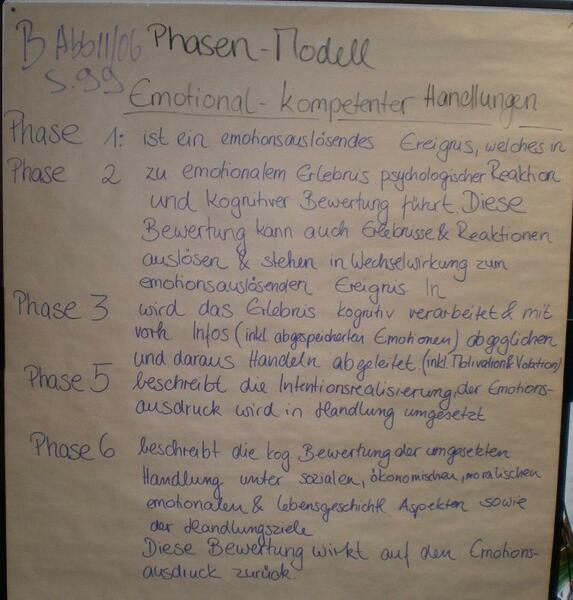 B Abb11/06 Phasen-Modell
S.99
Emotional-kompetenter Handlungen
Phase 1: ist ein emotionsauslösendes Ereignis, welches in
Phase 2 zu emotionalem Erlebnis psychologischer Reaktion
und kognitiver Bewertung führt. Diese
Bewertung kann auch Erlebnisse & Reaktionen
auslösen & stehen in Wechselwirkung zum
emotionsauslösenden Ereignis In
Phase 3 wird das Erlebnis kognitiv verarbeitet & mit
vorh Infos (inkl. abgespeicherten Emotionen) abgeglichen
und daraus Handeln abgeleitet (inkl. Motivation & Volation)
Phase 5 beschreibt die Intentionsrealisierung, der Emotions-
ausdruck wird in Handlung umgesetzt
Phase 6 beschreibt die kog. Bewertung der umgesetzten
Handlung unter sozialen, ökonomischen, moralischen
emotionalen & lebensgeschichtl Aspekten sowie
der Handlungsziele
Diese Bewertung wirkt auf den Emotions-
ausdruck zurück.